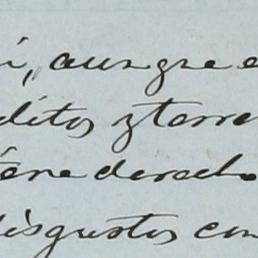 i, aunque e
ditos y terre
iene derecho
disgustos con